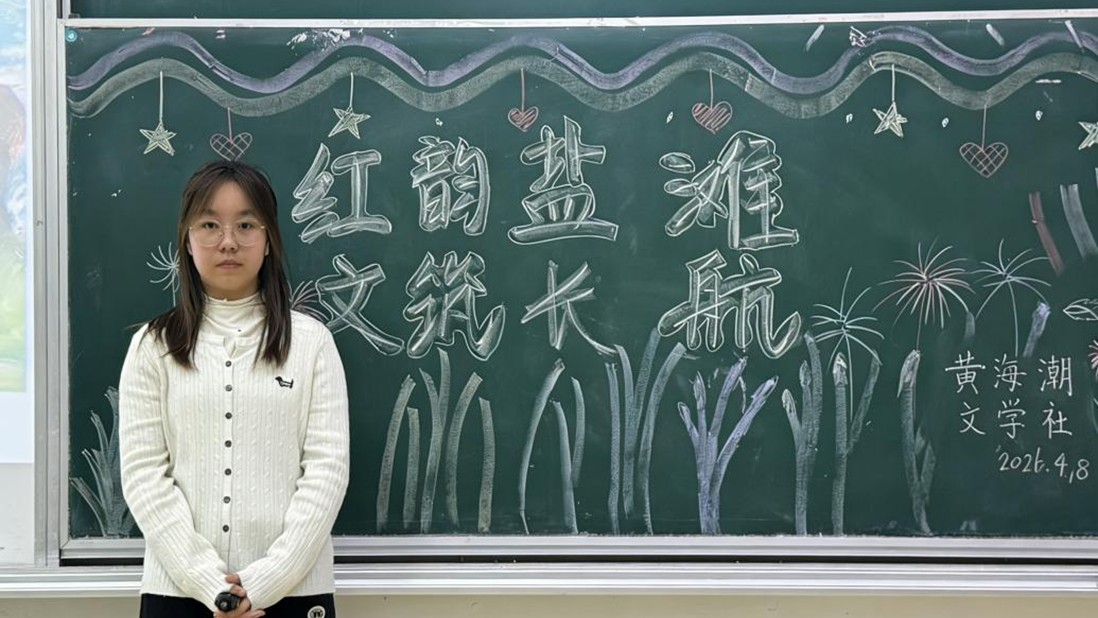 红韵盐滩
文筑长航
黄海潮
文学社
2026.4.8